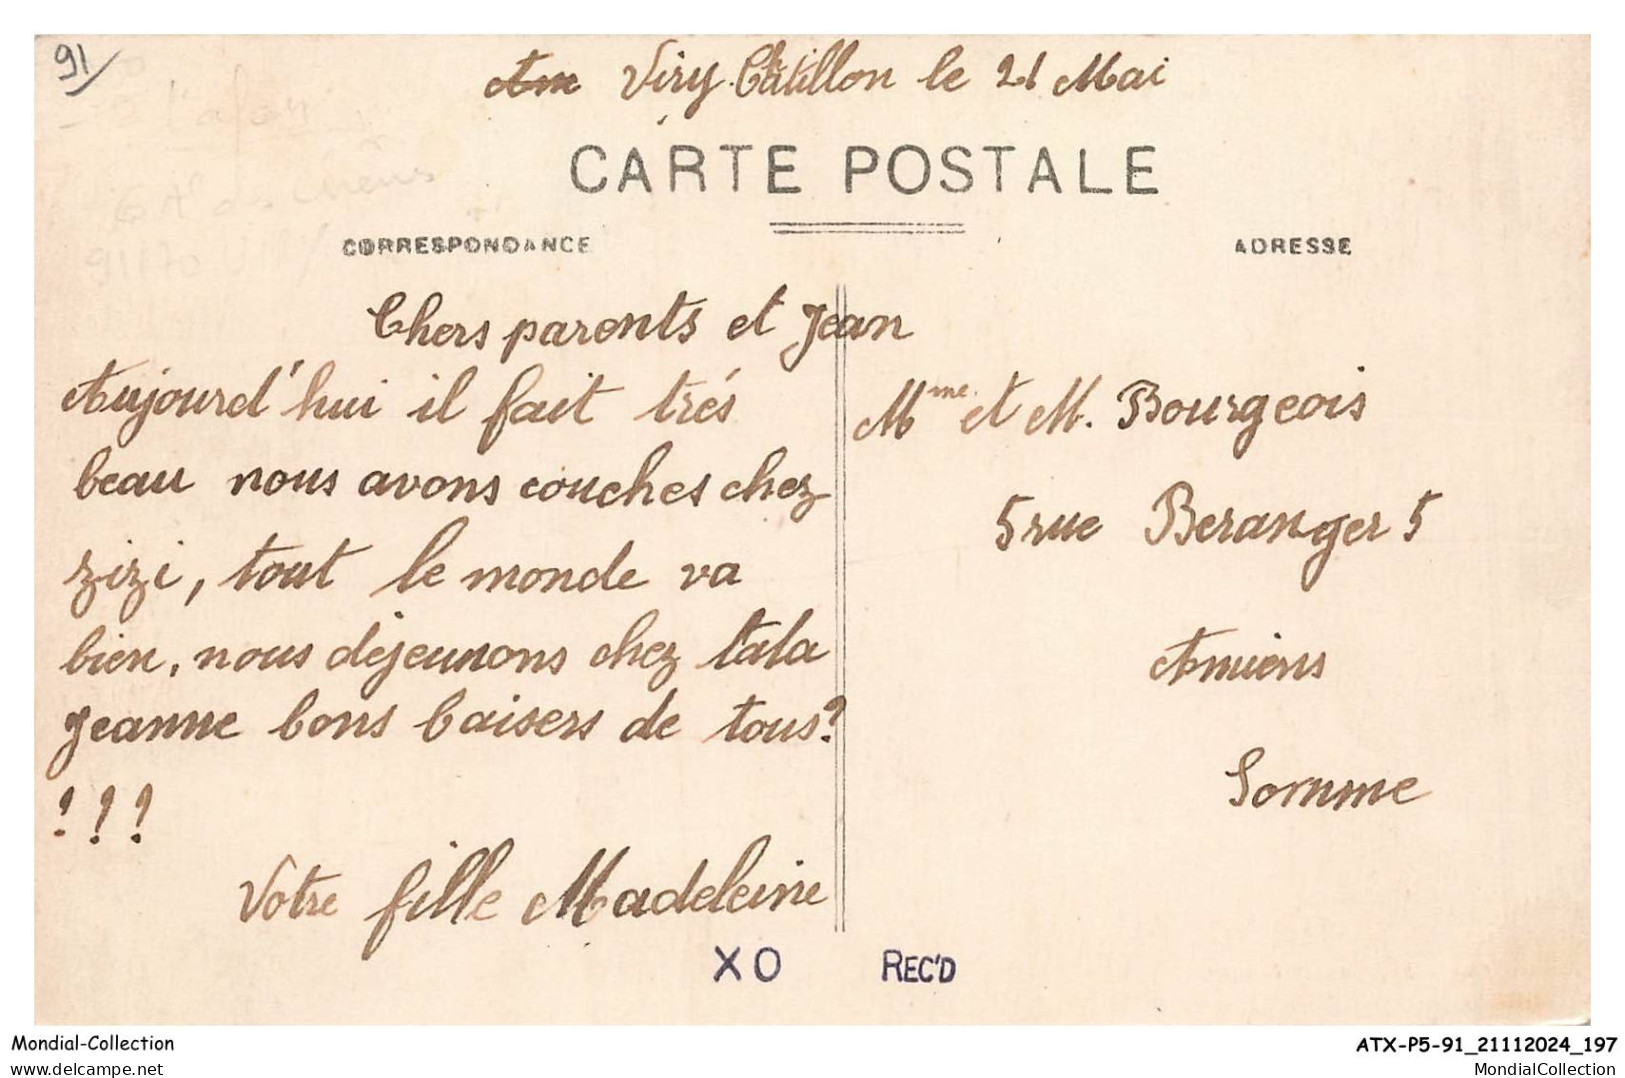 91/
Am Viry-Châtillon le 21 Mai
CARTE POSTALE
CORRESPONDANCE
ADRESSE
Chers parents et Jean
Aujourd'hui il fait trés
beau nous avons couches chez
zizi, tout le monde va
bien, nous déjeunons chez tata
Jeanne bons baisers de tous?
! ! !
Votre fille Madeleine
Mme et M. Bourgeois
5 rue Beranger 5
Amiens
Somme
XO REC'D
Mondial-Collection
delcampe.net
ATX-P5-91_21112024_197
MondialCollection